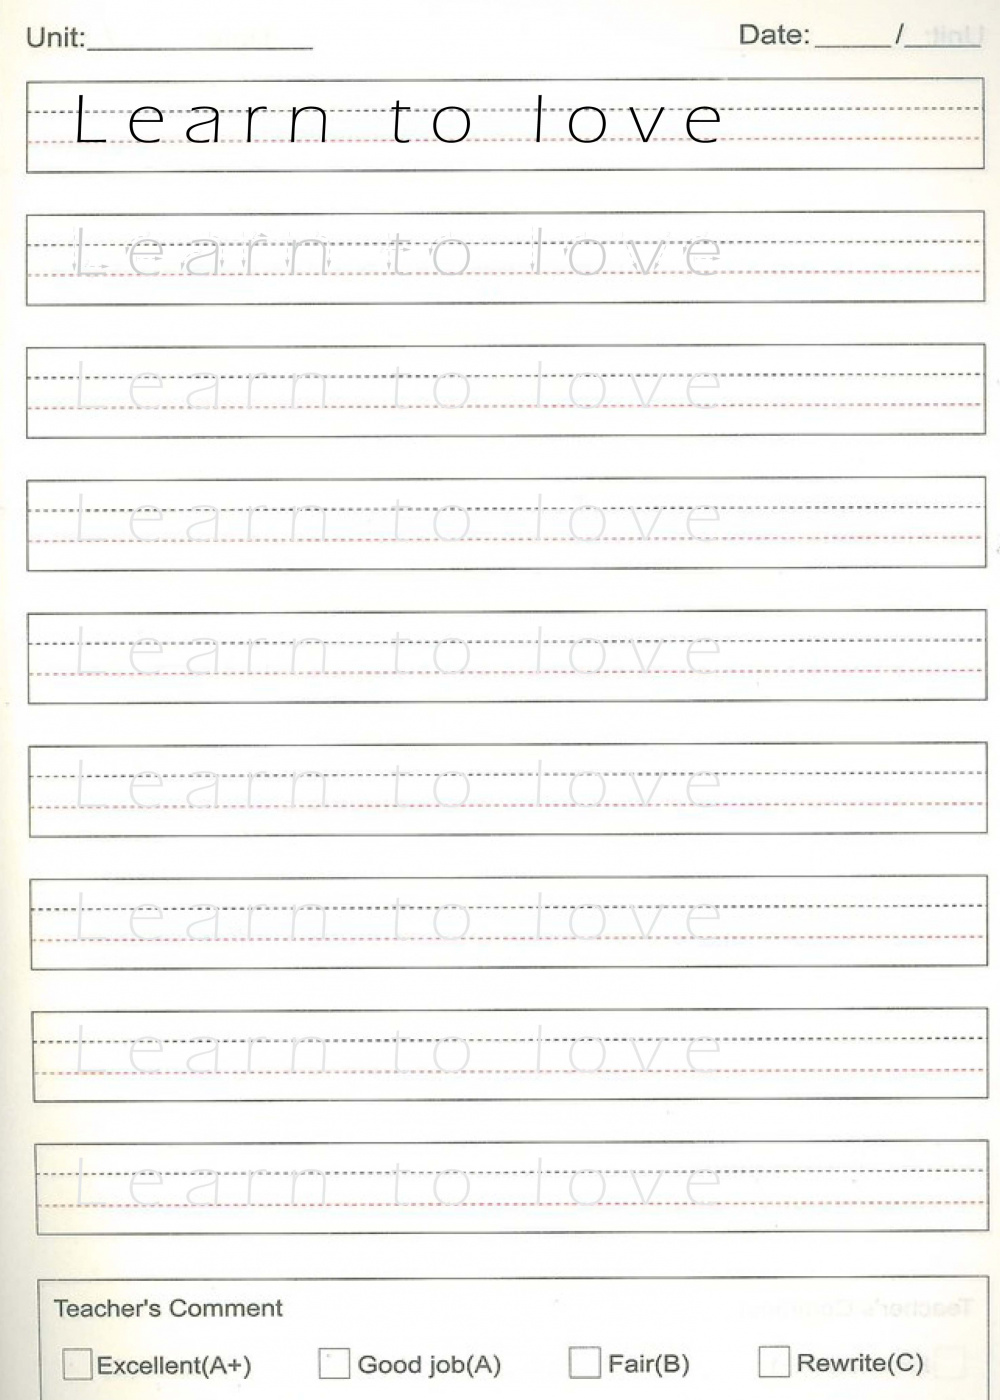 Unit:____________ Date:_____/_____
Learn to love
Learn to love
Learn to love
Learn to love
Learn to love
Learn to love
Learn to love
Learn to love
Learn to love
Teacher's Comment
Excellent(A+) Good job(A) Fair(B) Rewrite(C)